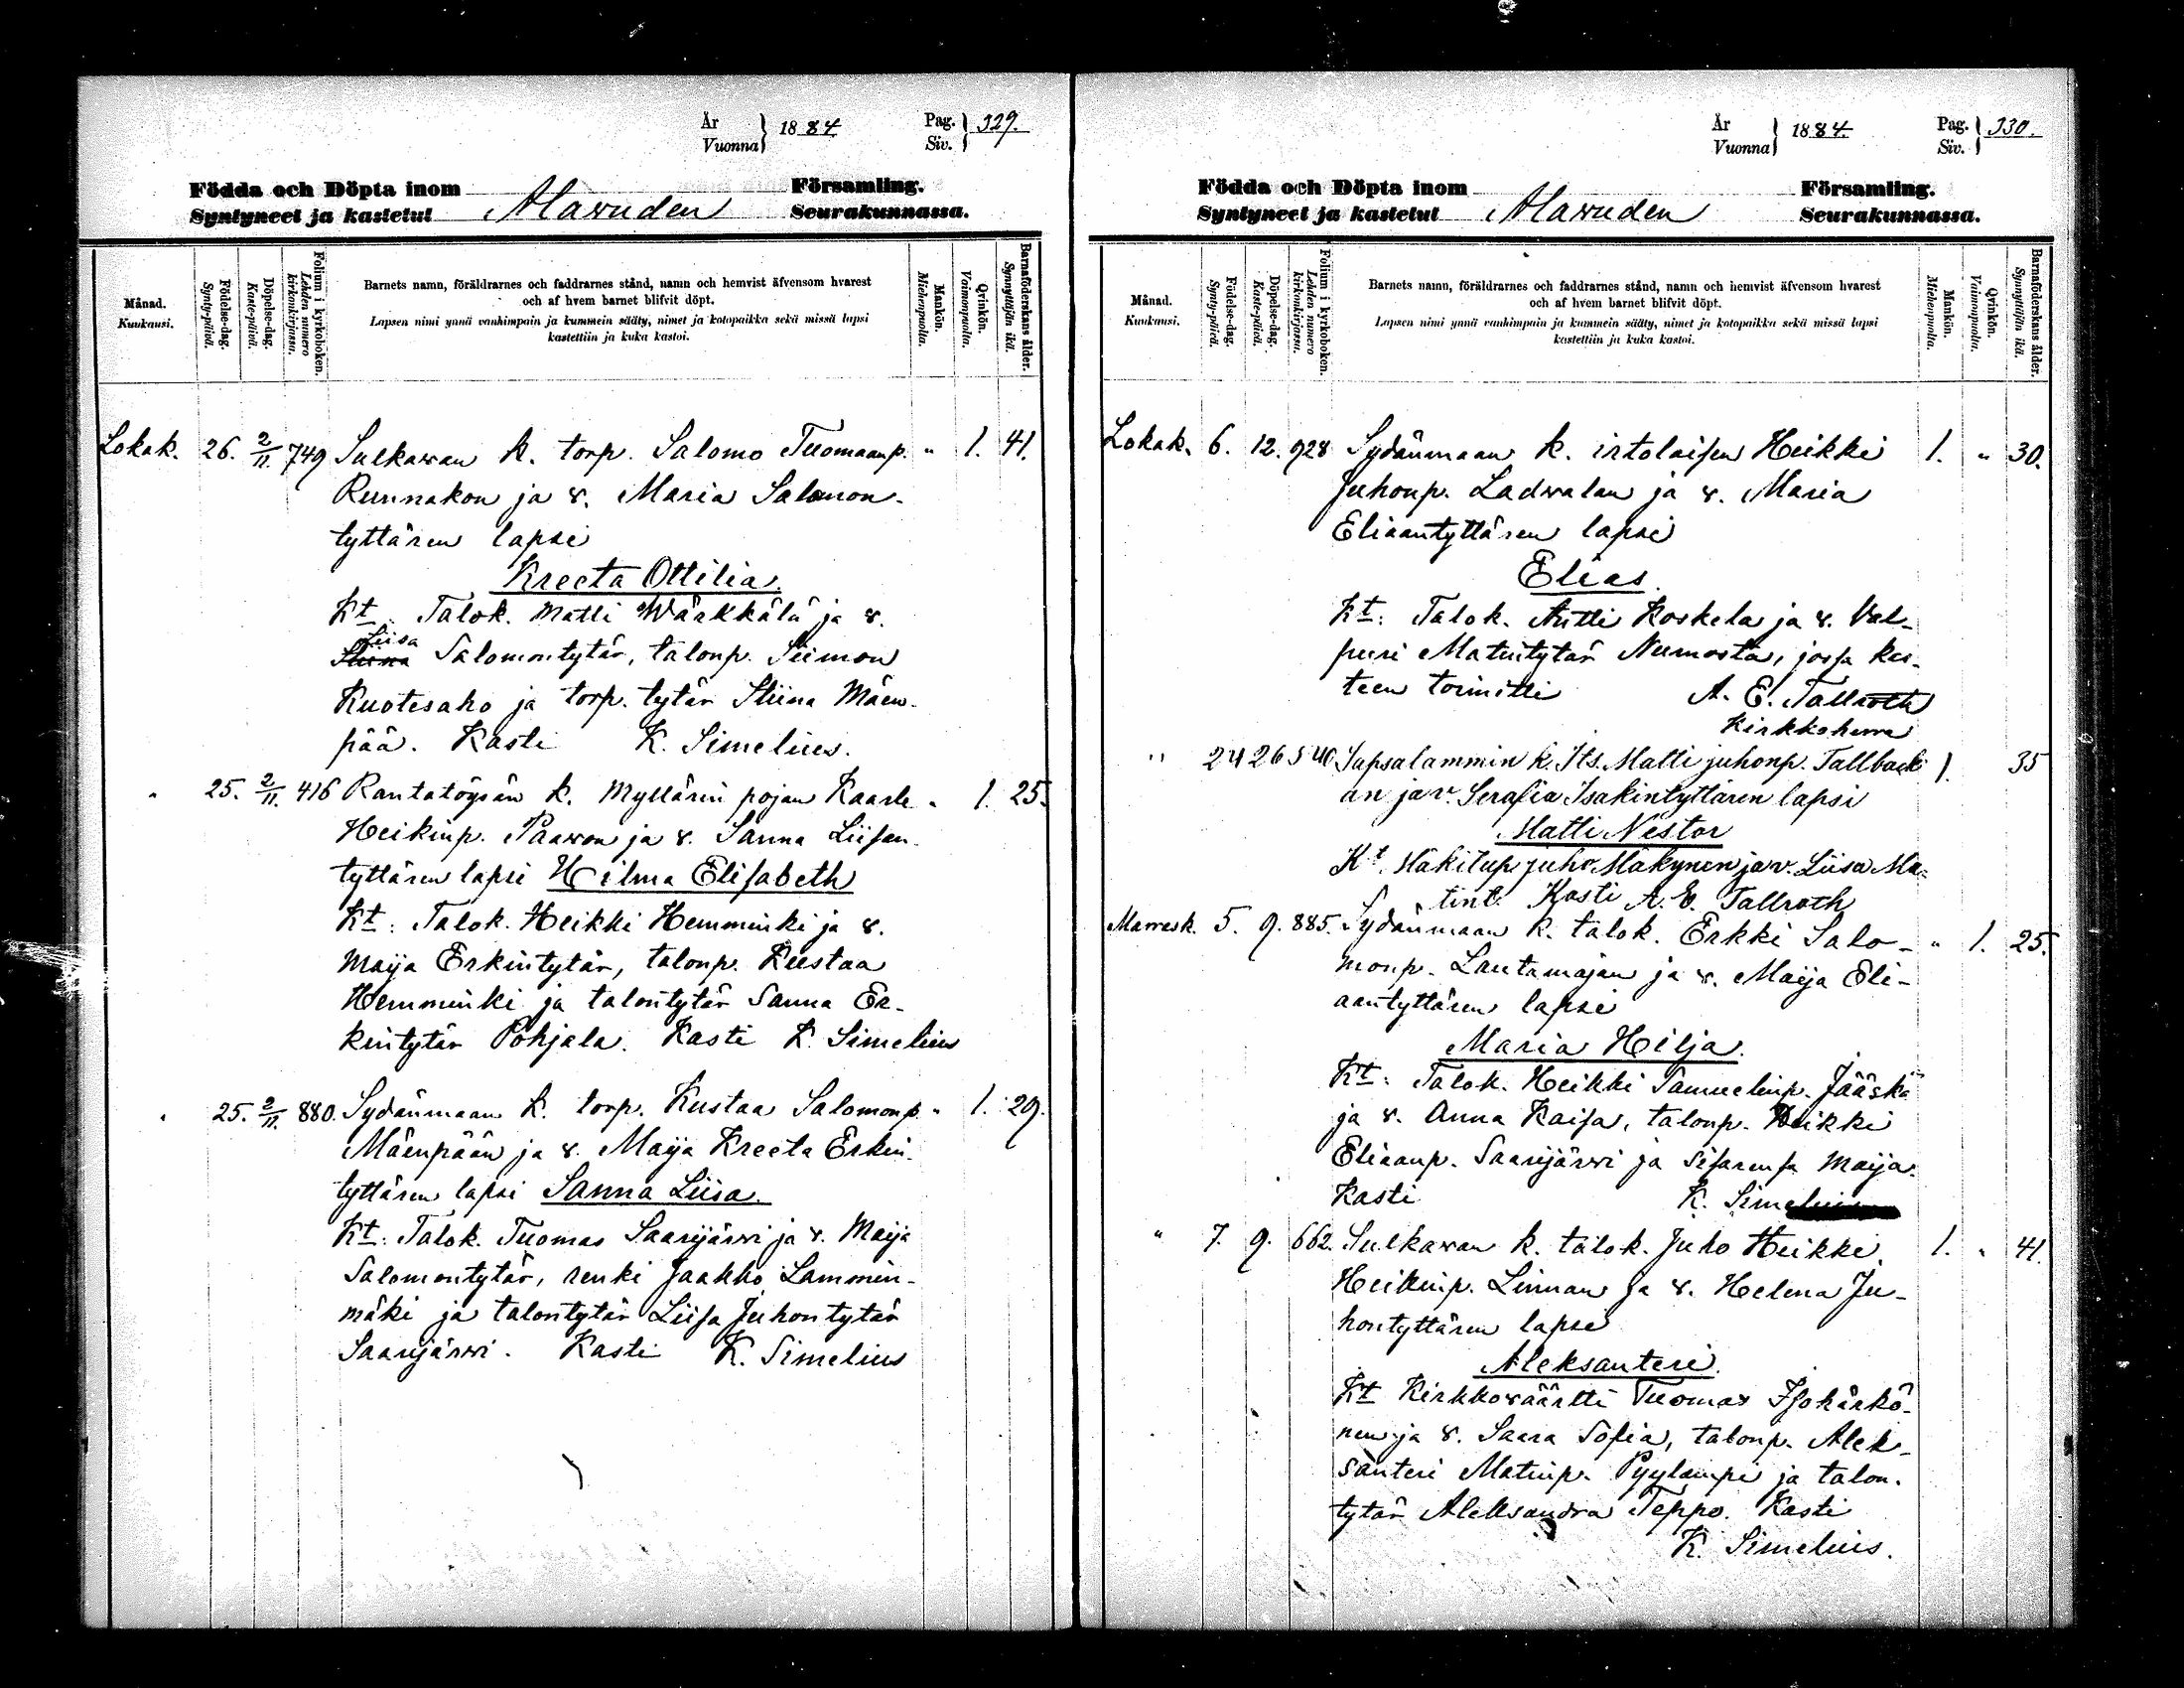 År
Vuonna
1884.
Pag.
Siv.
329.
Födda och Döpta inom
Syntyneet ja kastetut
Alavuden
Församling.
Seurakunnassa.
Månad.
Kuukausi.
Födelse-dag.
Synty-päivä.
Döpelse-dag.
Kaste-päivä.
Folium i kyrkoboken.
Lehden numero
kirkonkirjassa.
Barnets namn, föräldrarnes och faddrarnes stånd, namn och hemvist äfvensom hvarest
och af hvem barnet blifvit döpt.
Lapsen nimi ynnä vanhimpain ja kummein sääty, nimet ja kotopaikka sekä missä lapsi
kastettiin ja kuka kastoi.
Mankön.
Miehenpuolia.
Qvinkön.
Vaimonpuolia.
Barnaföderskans ålder.
Synnyttäjän ikä.
Lokak. 26. 2/11. 749 Sulkawan k. torp. Salomo Tuomaanp. " 1. 41.
Runnakon ja v. Maria Salomon-
tyttären lapsi
Kreeta Ottilia.
Kt: Talok. Matti Wärkkälä ja v.
Liisa
Stiina Salomontytär, talonp. Siimon
Kuotesaho ja torp. tytär Stiina Mäen-
pää. Kasti K. Simelius.
" 25. 2/11. 416 Rantatöysän k. Myllärin pojan Kaarle " 1. 25.
Heikinp. Paawon ja v. Sanna Liisan-
tyttären lapsi Hilma Elisabeth
Kt: Talok. Heikki Hemminki ja v.
Maija Erkintytär, talonp. Kustaa
Hemminki ja talontytär Sanna Er-
kintytär Pohjala. Kasti K. Simelius
" 25. 2/11. 880. Sydänmaan k. torp. Kustaa Salomonp. " 1. 29.
Mäenpään ja v. Maija Kreeta Erkin-
tyttären lapsi Sanna Liisa.
Kt: Talok. Tuomas Saarijärwi ja v. Maija
Salomontytär, renki Jaakko Lammin-
mäki ja talontytär Liisa Juhontytär
Saarijärwi. Kasti K. Simelius
År
Vuonna
1884.
Pag.
Siv.
330.
Födda och Döpta inom
Syntyneet ja kastetut
Alavuden
Församling.
Seurakunnassa.
Månad.
Kuukausi.
Födelse-dag.
Synty-päivä.
Döpelse-dag.
Kaste-päivä.
Folium i kyrkoboken.
Lehden numero
kirkonkirjassa.
Barnets namn, föräldrarnes och faddrarnes stånd, namn och hemvist äfvensom hvarest
och af hvem barnet blifvit döpt.
Lapsen nimi ynnä vanhimpain ja kummein sääty, nimet ja kotopaikka sekä missä lapsi
kastettiin ja kuka kastoi.
Mankön.
Miehenpuolia.
Qvinkön.
Vaimonpuolia.
Barnaföderskans ålder.
Synnyttäjän ikä.
Lokak. 6. 12. 928 Sydänmaan k. irtolaisen Heikki 1. " 30.
Juhonp. Ladwalan ja v. Maria
Eliaantyttären lapsi
Elias.
Kt: Talok. Antti Koskela ja v. Val-
puri Matintytär Nurmosta, jossa kas-
teen toimitti A. E. Tallroth
Kirkkoherra
" 24 26 540 Sapsalammin k. Its. Matti juhonp. Tallback- 1. 35
an ja v. Serafia Isakintyttären lapsi
Matti Nestor
Kt. Mäkitup juho Mäkynen ja v. Liisa Ma-
tint. Kasti A. E. Tallroth
Marrask. 5. 9. 885. Sydänmaan k. talok. Erkki Salo- " 1. 25.
monp. Lautamajan ja v. Maija Eli-
aantyttären lapsi
Maria Hilja.
Kt: Talok. Heikki Samuelinp. Jääskä
ja v. Anna Kaisa, talonp. Heikki
Eliaanp. Saarijärwi ja sisarensa Maija.
Kasti K. Simelius
" 7. 9. 662. Sulkawan k. talok. Juho Heikki 1. " 41.
Heikinp. Linnan ja v. Helena Ju-
hontyttären lapsi
Aleksanteri.
Kt Kirkkowäärtti Tuomas Isohärkö-
nen ja v. Saara Sofia, talonp. Alek-
santeri Matinp. Pyylampi ja talon-
tytär Aleksandra Teppo. Kasti
K. Simelius.